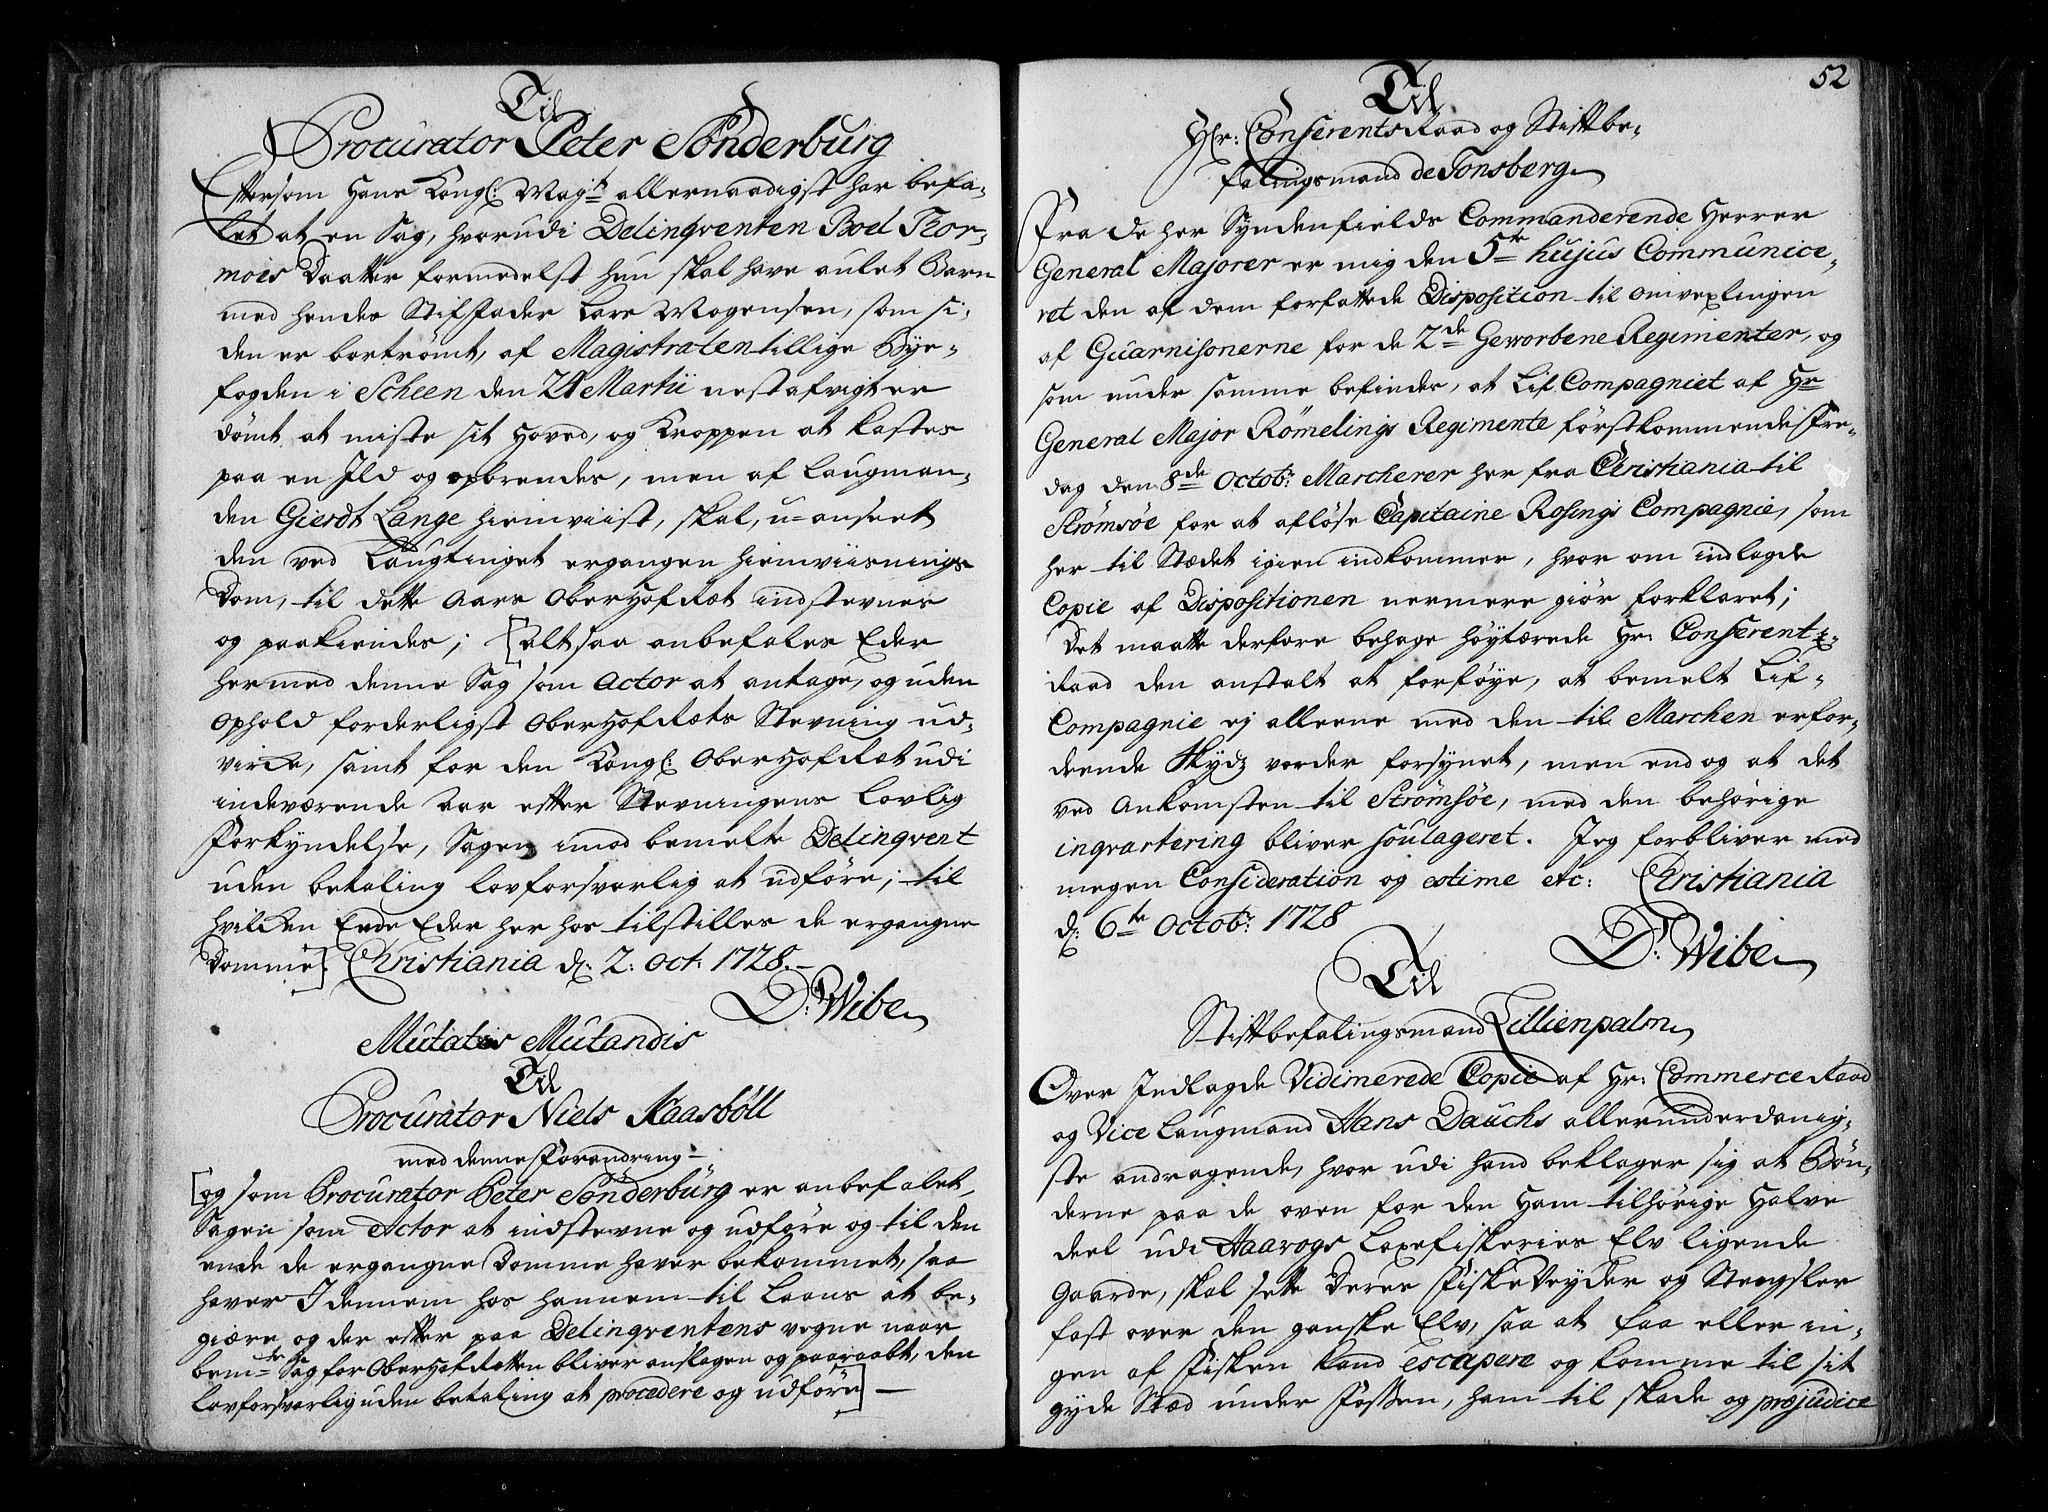 Til
Procurator Peter Sönderburg
Eftersom Hans Kongl: Mayt allernaadigst har befa-
let at en Sag, hvorudi Delinqventen Boel Thor-
moes Daatter formedelst hun skal have aulet Barn
med hendes Stiffader Lars Mogensen, som si-
den er bortrömt, af Magistraten tillige Bye-
fogden i Scheen den 21 Martii nestafvigt er
dömt at miste sit Hoved, og Kroppen at kastes
paa en Ild og opbrendes, men af Laugman-
den Gierdt Lange hiemviist, skal, u-anseet
den ved Laugtinget ergangen hiemviisnings
Dom, til dette Aars OberHofRæt indstevnes
og paakiendes; [altsaa anbefales Eder
hermed denne Sag som Actor at antage, og uden
Ophold forderligst OberHofRæts Stevning ud-
virke, samt for den Kongl: OberHofRæt udi
indeværende Aar efter Stevningens lovlig
Forkyndelse, Sagen imod bemelte Delinqvent
uden betaling lovforsvarlig at udföre; til
hvilken Ende Eder her hos tilstilles de ergangne
Domme]. Christiania d: 2: Oct: 1728.
D: Wibe
Mutatis Mutandis
Til
Procurator Niels Kaasböll
med denne Forandring
[og som Procurator Peter Sönderburg er anbefalet,
Sagen som Actor at indstevne og udföre og til den
ende de ergangne Domme haver bekommet, saa
haver I dennem hos hannem til Laans at be-
giære og der efter paa Delinqventens vegne naar
bemte Sag for OberHofRætten bliver anslagen og paaraabt, den
lovforsvarlig uden betaling at procedere og udföre]
52
Til
Hr: ConferentsRaad og Stiftbe-
falingsmand de Tonsberg
Fra de her Syndenfields Commanderende Herrer
General Majorer er mig den 5te hujus Communice-
ret den af dem forfattede Disposition til omvexlingen
af Guarnisonerne for de 2de Geworbene Regimenter, og
som under samme befindes, at Lif Compagniet af Hr
General Major Römelings Regimente förstkommende Fre-
dag den 8de Octob: Marcherer her fra Christiania til
Strömsöe for at aflöse Capitaine Rosings Compagnie, som
her til Stædet igien indkommer, hvor om indlagde
Copie af Dispositionen nermere giör forklaret;
Det maatte derfore behage höytærede Hr: Conferentz-
Raad den anstalt at forföye, at bemelt Lif-
Compagnie ej alleene med den til Marchen erfor-
deende Skydz vorder forsynet, men end og at det
ved Ankomsten til Strömsöe, med den behörige
inqvartering bliver soulageret. Jeg forbliver med
megen Consideration og estime etc: Christiania
d: 6te Octob: 1728
D: Wibe
Til
Stiftbefalingsmand Lillienpalm
Over Indlagde Vidimerede Copie af Hr: Commerce Raad
og Vice Laugmand Hans Dauchs allerunderdanig-
ste andragende, hvor udi hand beklager sig at Bön-
derne paa de oven for den Ham tilhörige Halve
deel udi Haarogs Laxefiskeries Elv ligende
Gaarde, skal sette Deres FiskeVeyder og Stengsler
fast over den ganske Elv, saa at faa eller in-
gen af Fisken kand escapere og komme til sit
gyde Stæd under Fossen, ham til skade og præjudice